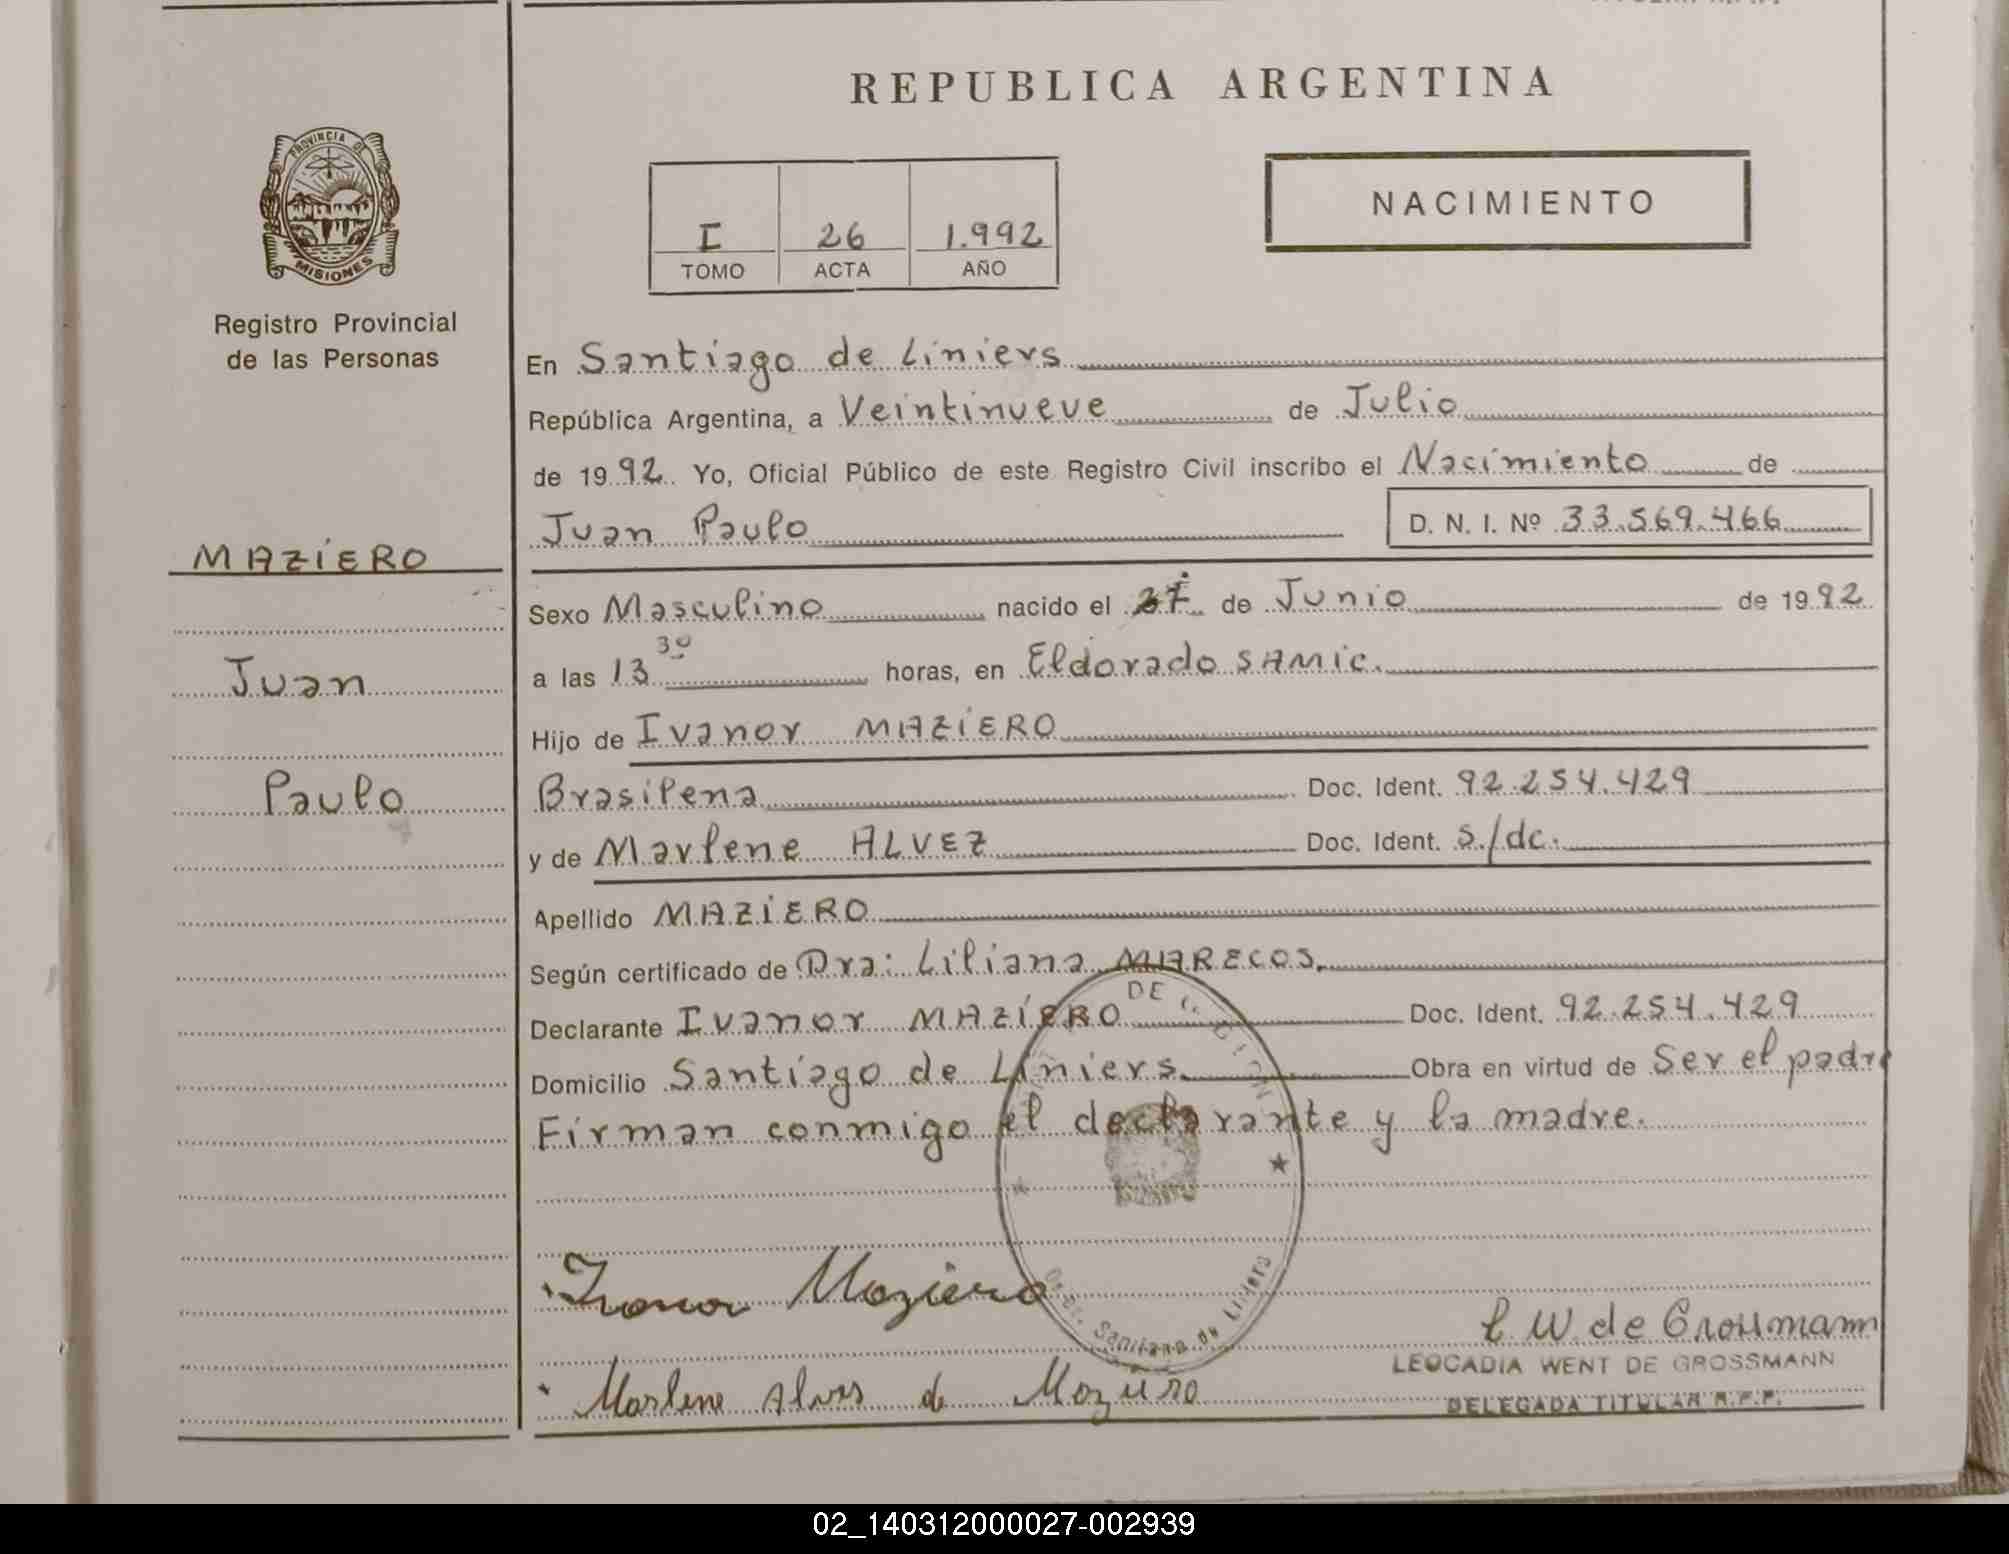 REPUBLICA ARGENTINA
PROVINCIA DE
MISIONES
Registro Provincial
de las Personas
NACIMIENTO
I 26 1.992
TOMO ACTA AÑO
En Santiago de Liniers
República Argentina, a Veintinueve de Julio
de 1992. Yo, Oficial Público de este Registro Civil inscribo el Nacimiento de
Juan Paulo D. N. I. Nº 33.569.466
MAZIERO
Juan
Paulo
Sexo Masculino nacido el de Junio de 1992
a las 13 30 horas, en Eldorado SAMIC.
Hijo de Ivanor MAZIERO
Brasilena Doc. Ident. 92.254.429
y de Marlene ALVEZ Doc. Ident. s./dc.
Apellido MAZIERO
Según certificado de Dra: Liliana MARECOS.
Declarante Ivanor MAZIERO Doc. Ident. 92.254.429
Domicilio Santiago de Liniers. Obra en virtud de Ser el padre
Firman conmigo el declarante y la madre.
Ivanor Maziero
Santiago de Liniers
L W de Grossmann
LEOCADIA WENT DE GROSSMANN
DELEGADA TITULAR R.P.P.
Marlene Alves de Maziero
02_140312000027-002939